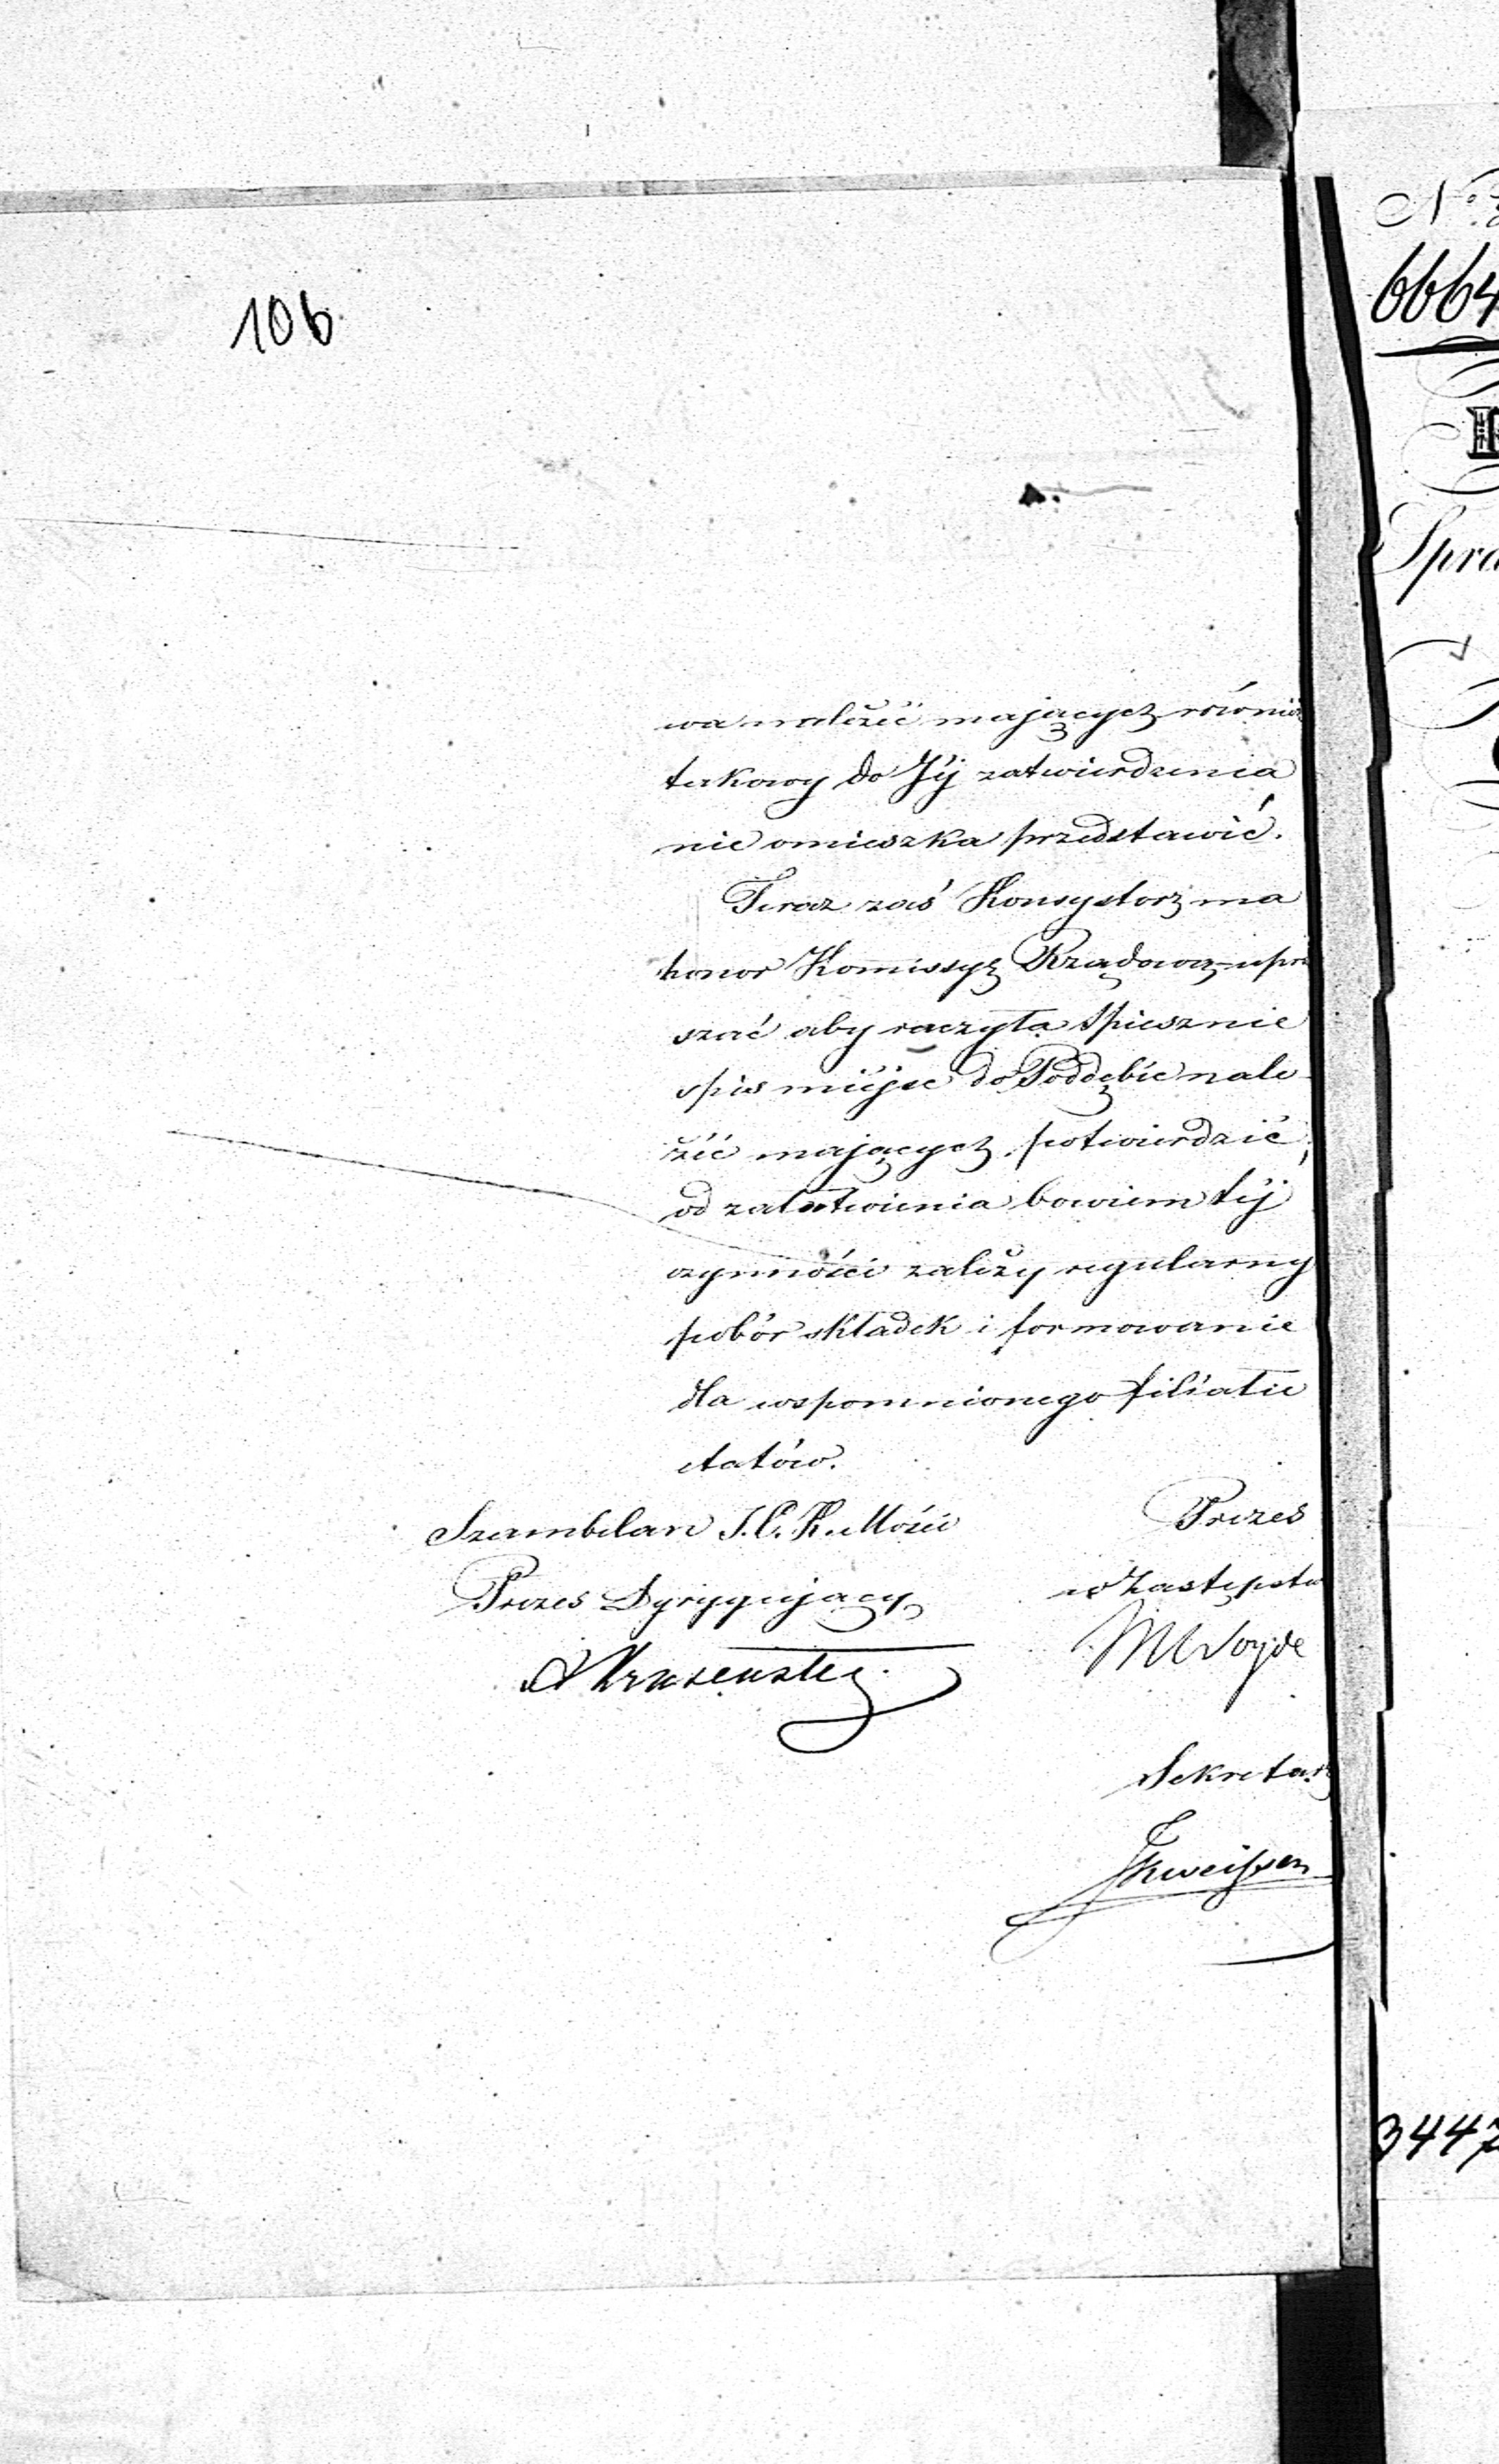 106
wa należéć mających równie
takowy do Jéj zatwierdzenia
nie omieszka przedstawić.
Teraz zaś Konsystorz ma
honor Kommissyą Rządową upra
szać aby raczyła spiesznie
spis miéjsc do Poddębic nale-
żéć mających potwierdzić,
od załatwienia bowiem téj
czynności zależy regularny
pobór składek i formowanie
dla wspomnionego filiału
etatów.
Szambelan J. C. K. Mości
Prezes Dyrygujący
Prezes
w Zastępstw
Sekretarz
N
6664
Spra
3447